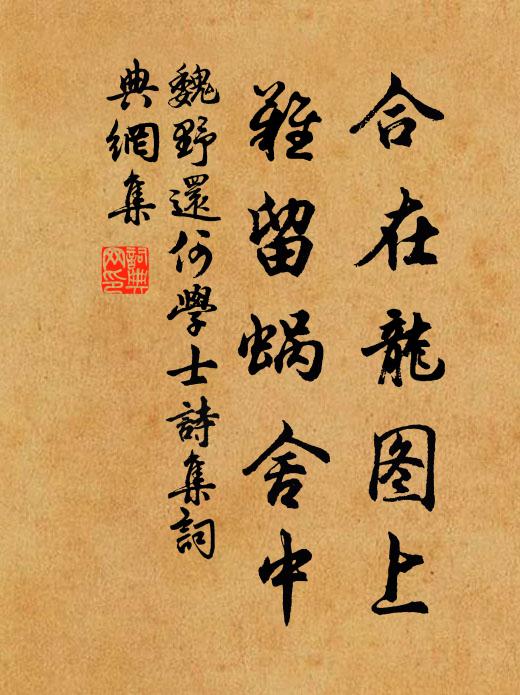 合在龍图上
难留蜗舍中
魏野還何學士詩集詞
典網集
詞典
网印